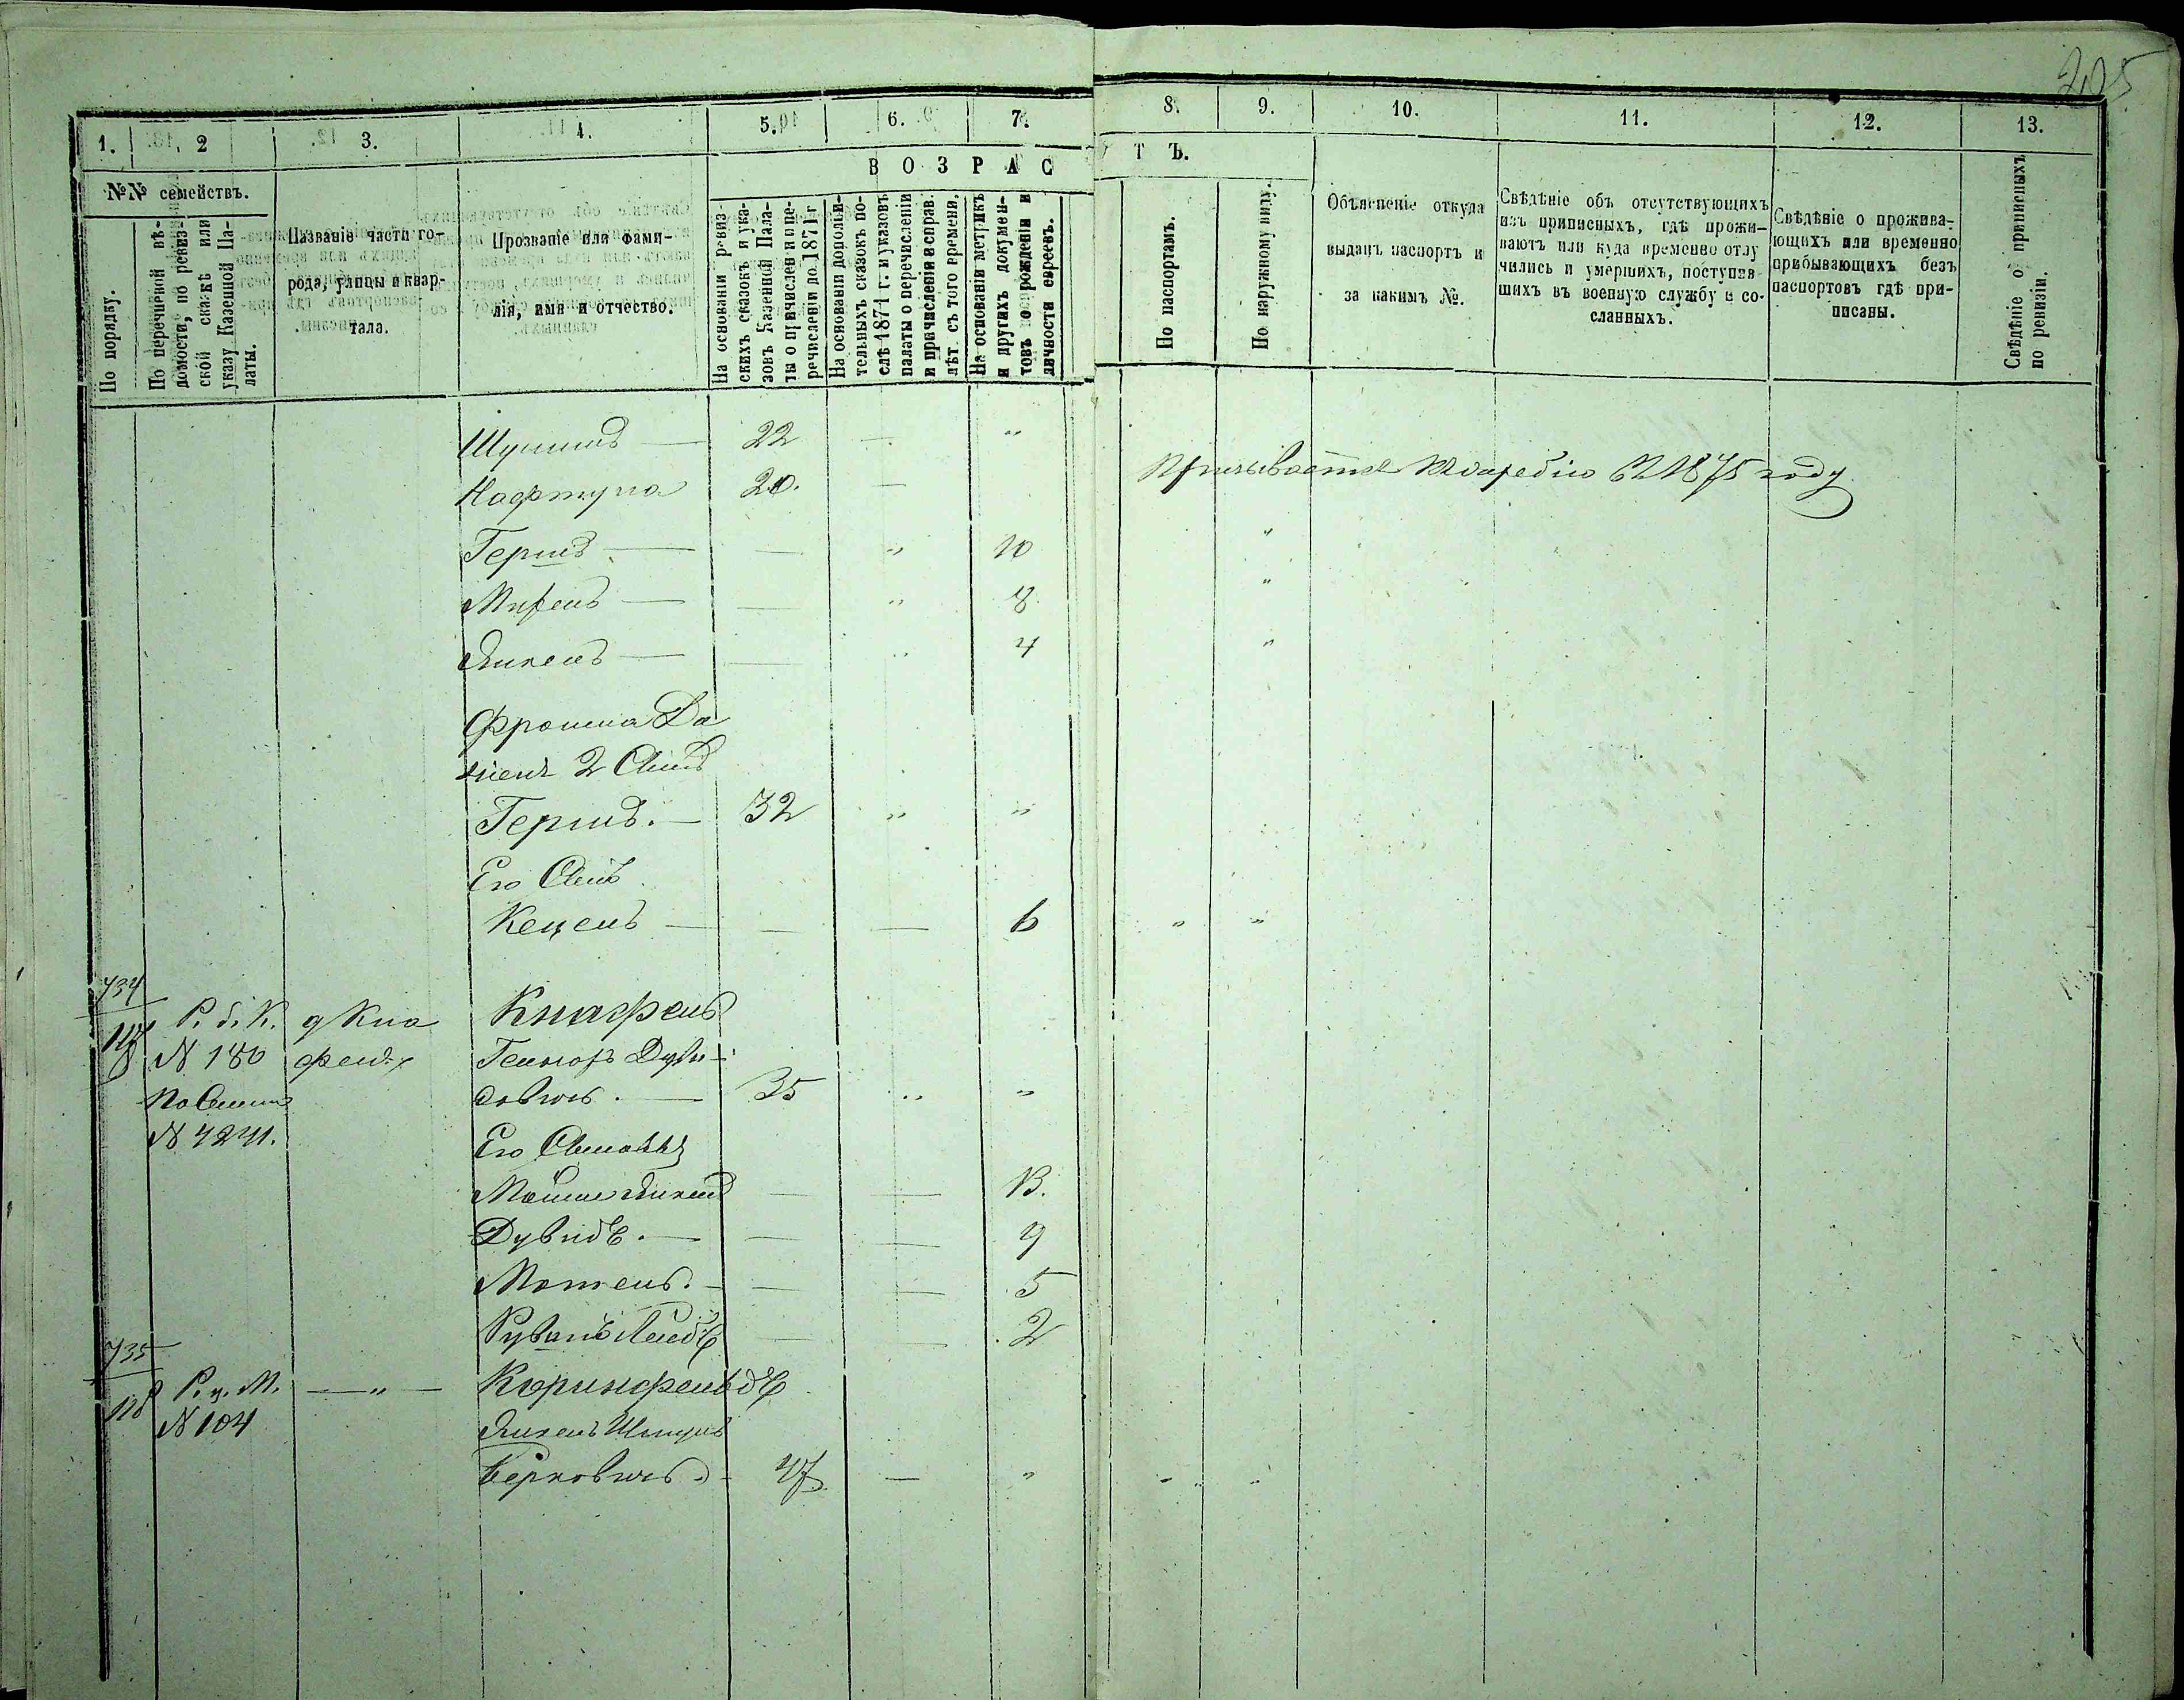 205
1. 2 3. 4. 5. 6. 7. 8. 9. 10. 11. 12. 13.
В О З Р А С Т Ъ.
№№ семействъ.
По порядку.
По перечневой вѣ-
домости, по ревиз-
ской сказкѣ или
указу Казенной Па-
латы.
Названіе части го-
рода, улицы и квар-
тала.
Прозваніе или фами-
лія, имя и отчество.
На основаніи ревиз-
скихъ сказокъ и ука-
зовъ Казенной Пала-
ты о причислен и пе-
речислени до 1871 г
На основаніи дополни-
тельныхъ сказокъ по-
слѣ 1871 г. и указовъ
палаты о перечисленіи
и причисленіи в справ.
лѣт. съ того времени.
На основаніи метрикъ
и другихъ докумен-
товъ о рожденіи и
личности евреевъ.
По паспортамъ.
По наружному виду.
Объясненіе откуда
выданъ паспортъ и
за какимъ №.
Свѣдѣніе объ отсутствующихъ
изъ приписныхъ, гдѣ прожи-
ваютъ или куда временно отлу
чились и умершихъ, поступив-
шихъ въ военную службу и со-
сланныхъ.
Свѣдѣніе о прожива-
ющихъ или временно
прибывающихъ безъ
паспортовъ гдѣ при-
писаны.
Свѣдѣніе о приписныхъ
по ревизіи.
22 — "
20. —
въ 1875 году
Гершъ — — " 10 "
— — " 8 "
Янкель — — " 4 "
2 Сынъ
Гершъ. — 32 " "
Его Сынъ
— — — 6 " "
734
N 180
35 " "
N 4241.
Его Сыновья
Мошко Янкель — — 13.
Дувидъ. — — — 9
Мотель. — — — 5
Рувинъ Лейбъ — — 2
735
118 — " — Коринфельдъ
N 104
Янкель
Берковичъ. — 47 — " " "